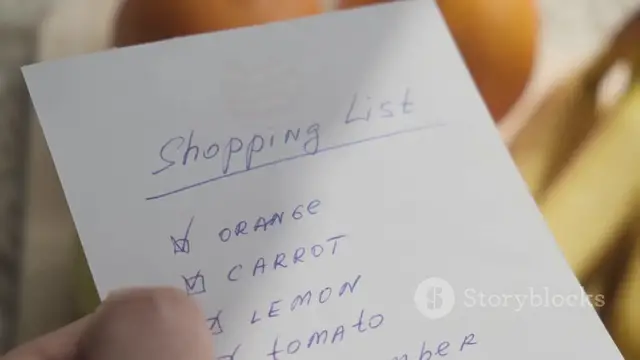 Shopping List
ORANGE
CARROT
LEMON
TOMATO
Storyblocks